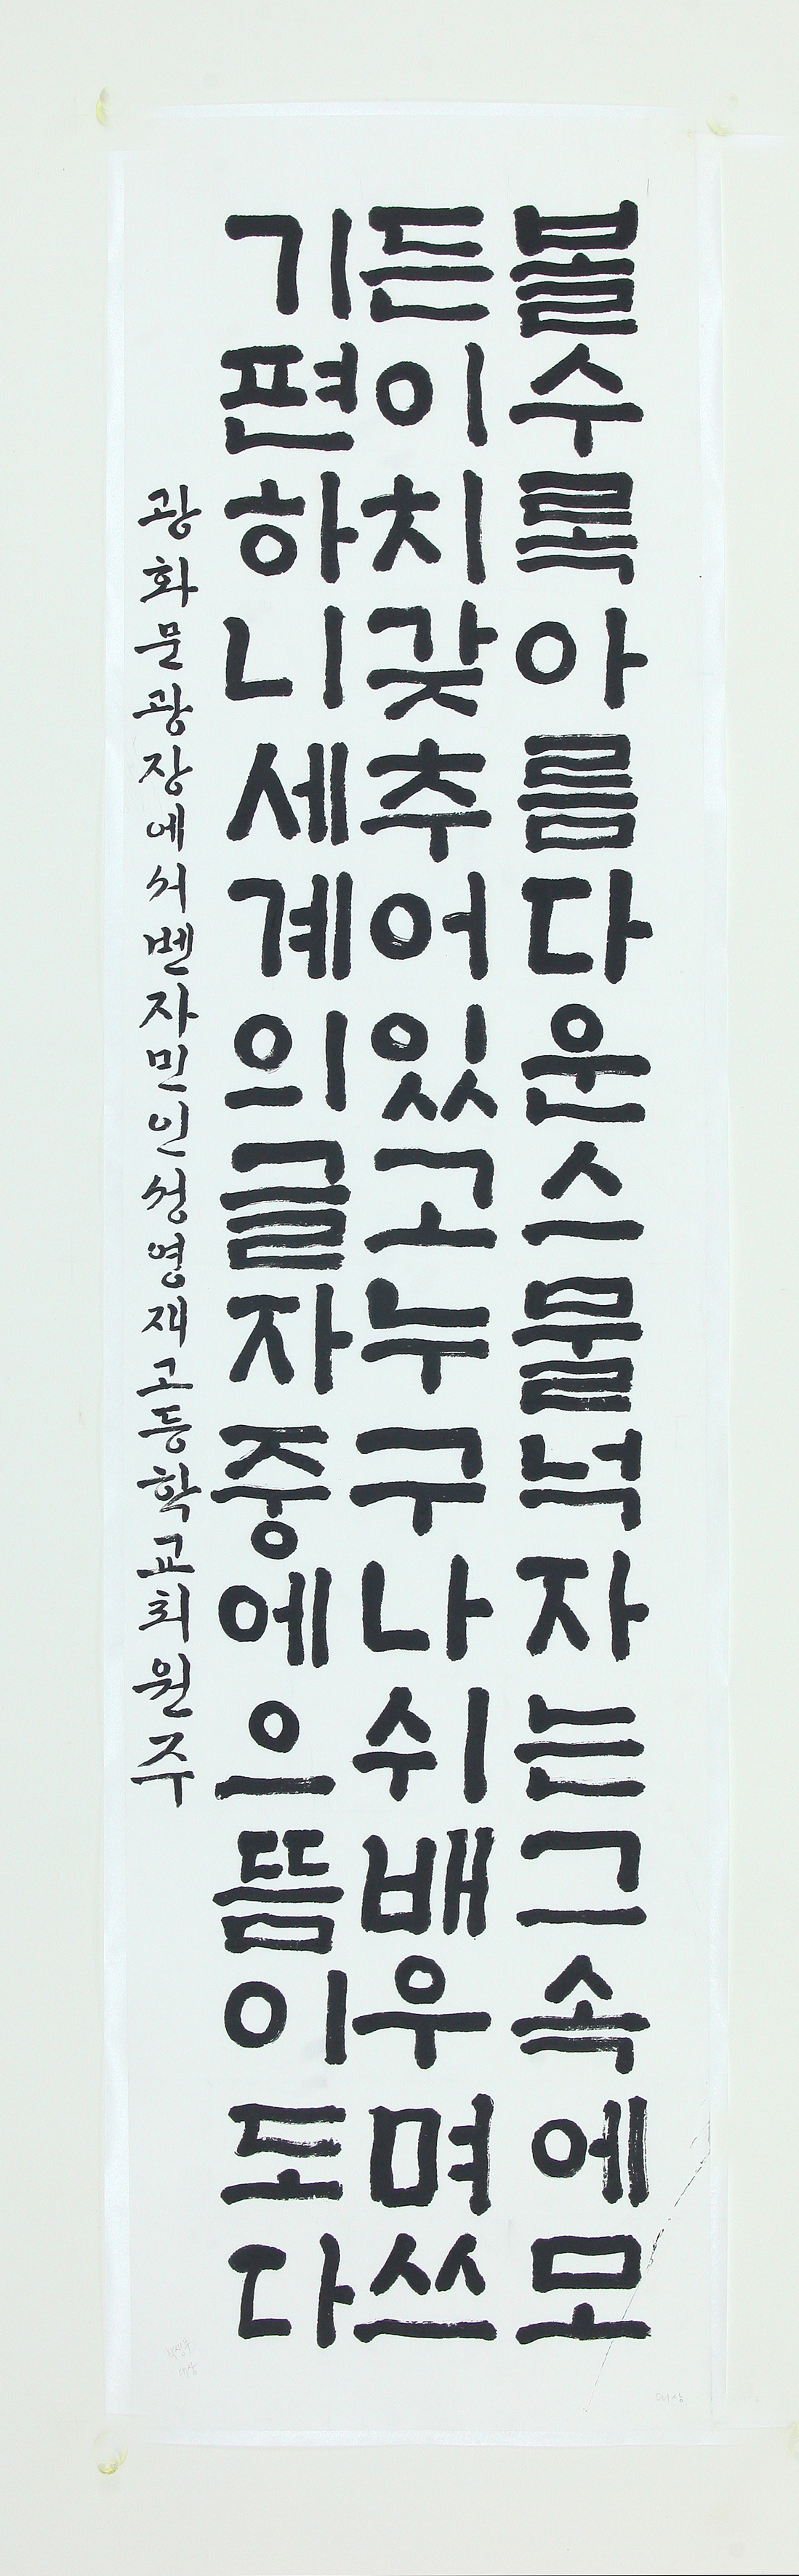 볼수록아름다운스물넉자는그속에모
든이치갖추어있고누구나쉬배우며쓰
기편하니세계의글자중에으뜸이도다
광화문광장에서벤자민인성영재고등학교최원주